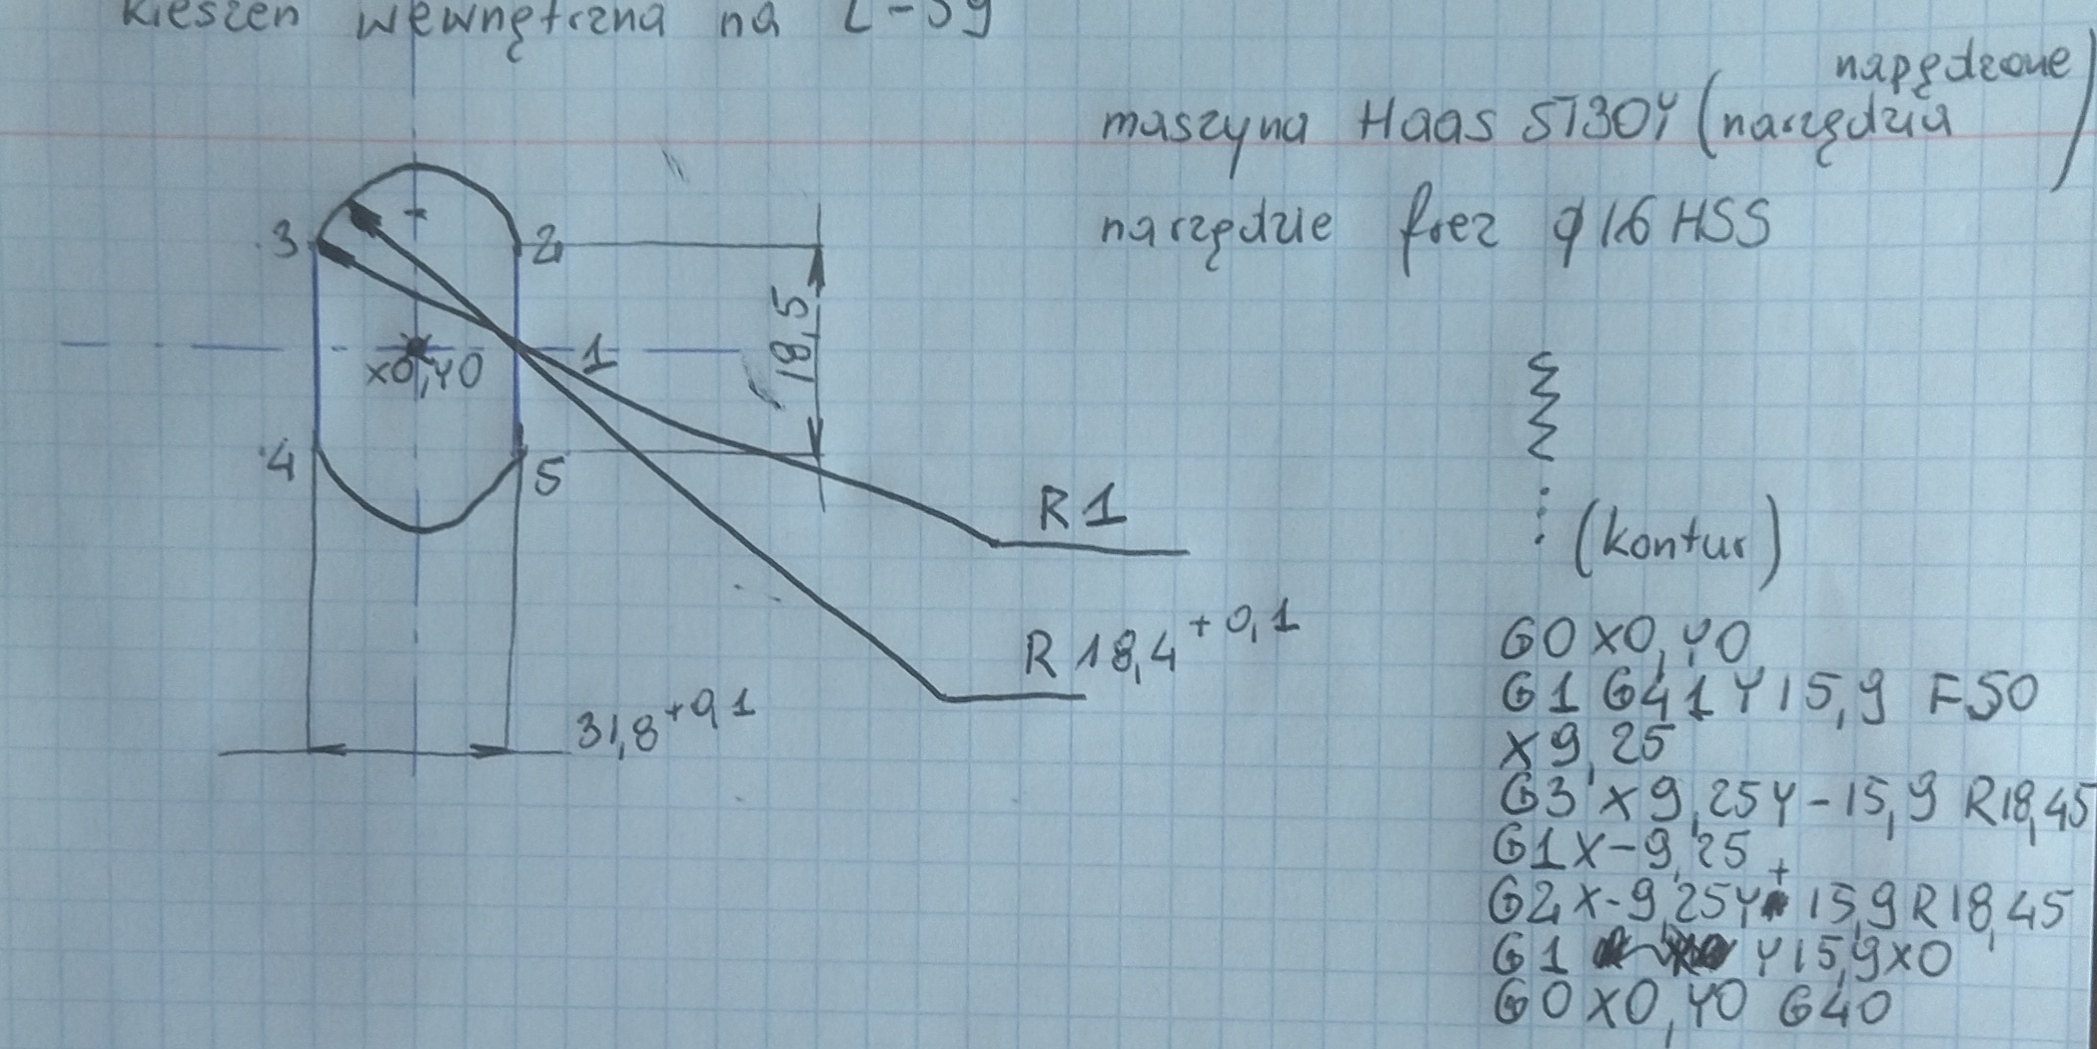 kieszeń wewnętrzna na
napędzone
maszyna Haas ST30Y (narzędzia )
narzędzie frez φ16 HSS
3
2
18,5
1
x0,Y0
4
5
R1
(kontur)
R 18,4 +0,1
31,8 +0,1
G0 X0,Y0
G1 G41 Y15,9 F50
X9,25
G3 X9,25Y-15,9 R18,45
G1X-9,25
G2X-9,25Y+15,9R18,45
G1 Y15,9X0
G0X0,Y0 G40